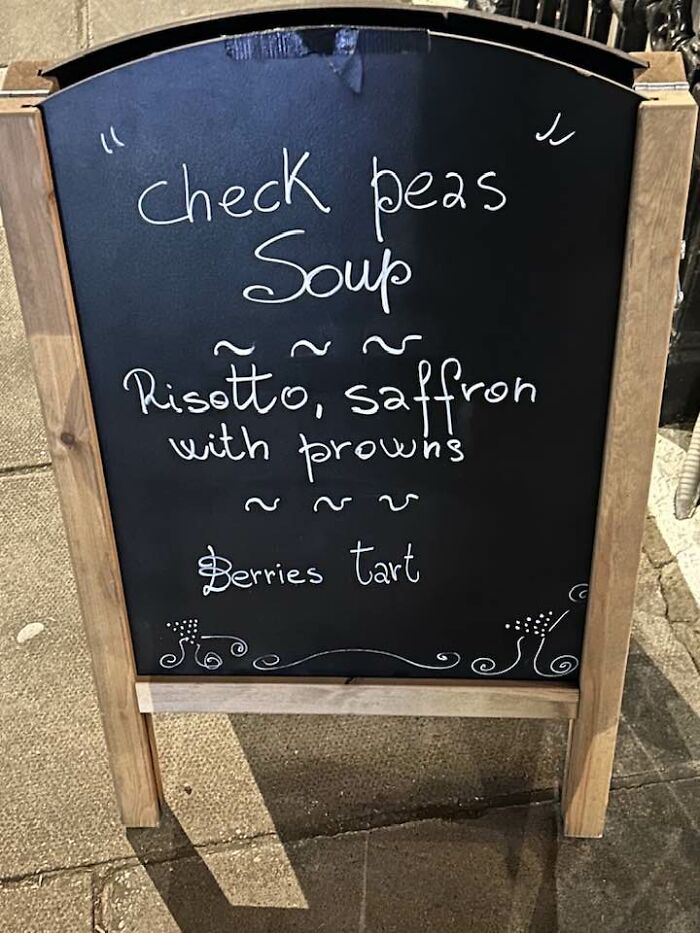 "check peas"
Soup
~ ~ ~
Risotto, saffron
with prowns
~ ~ ~
Berries tart